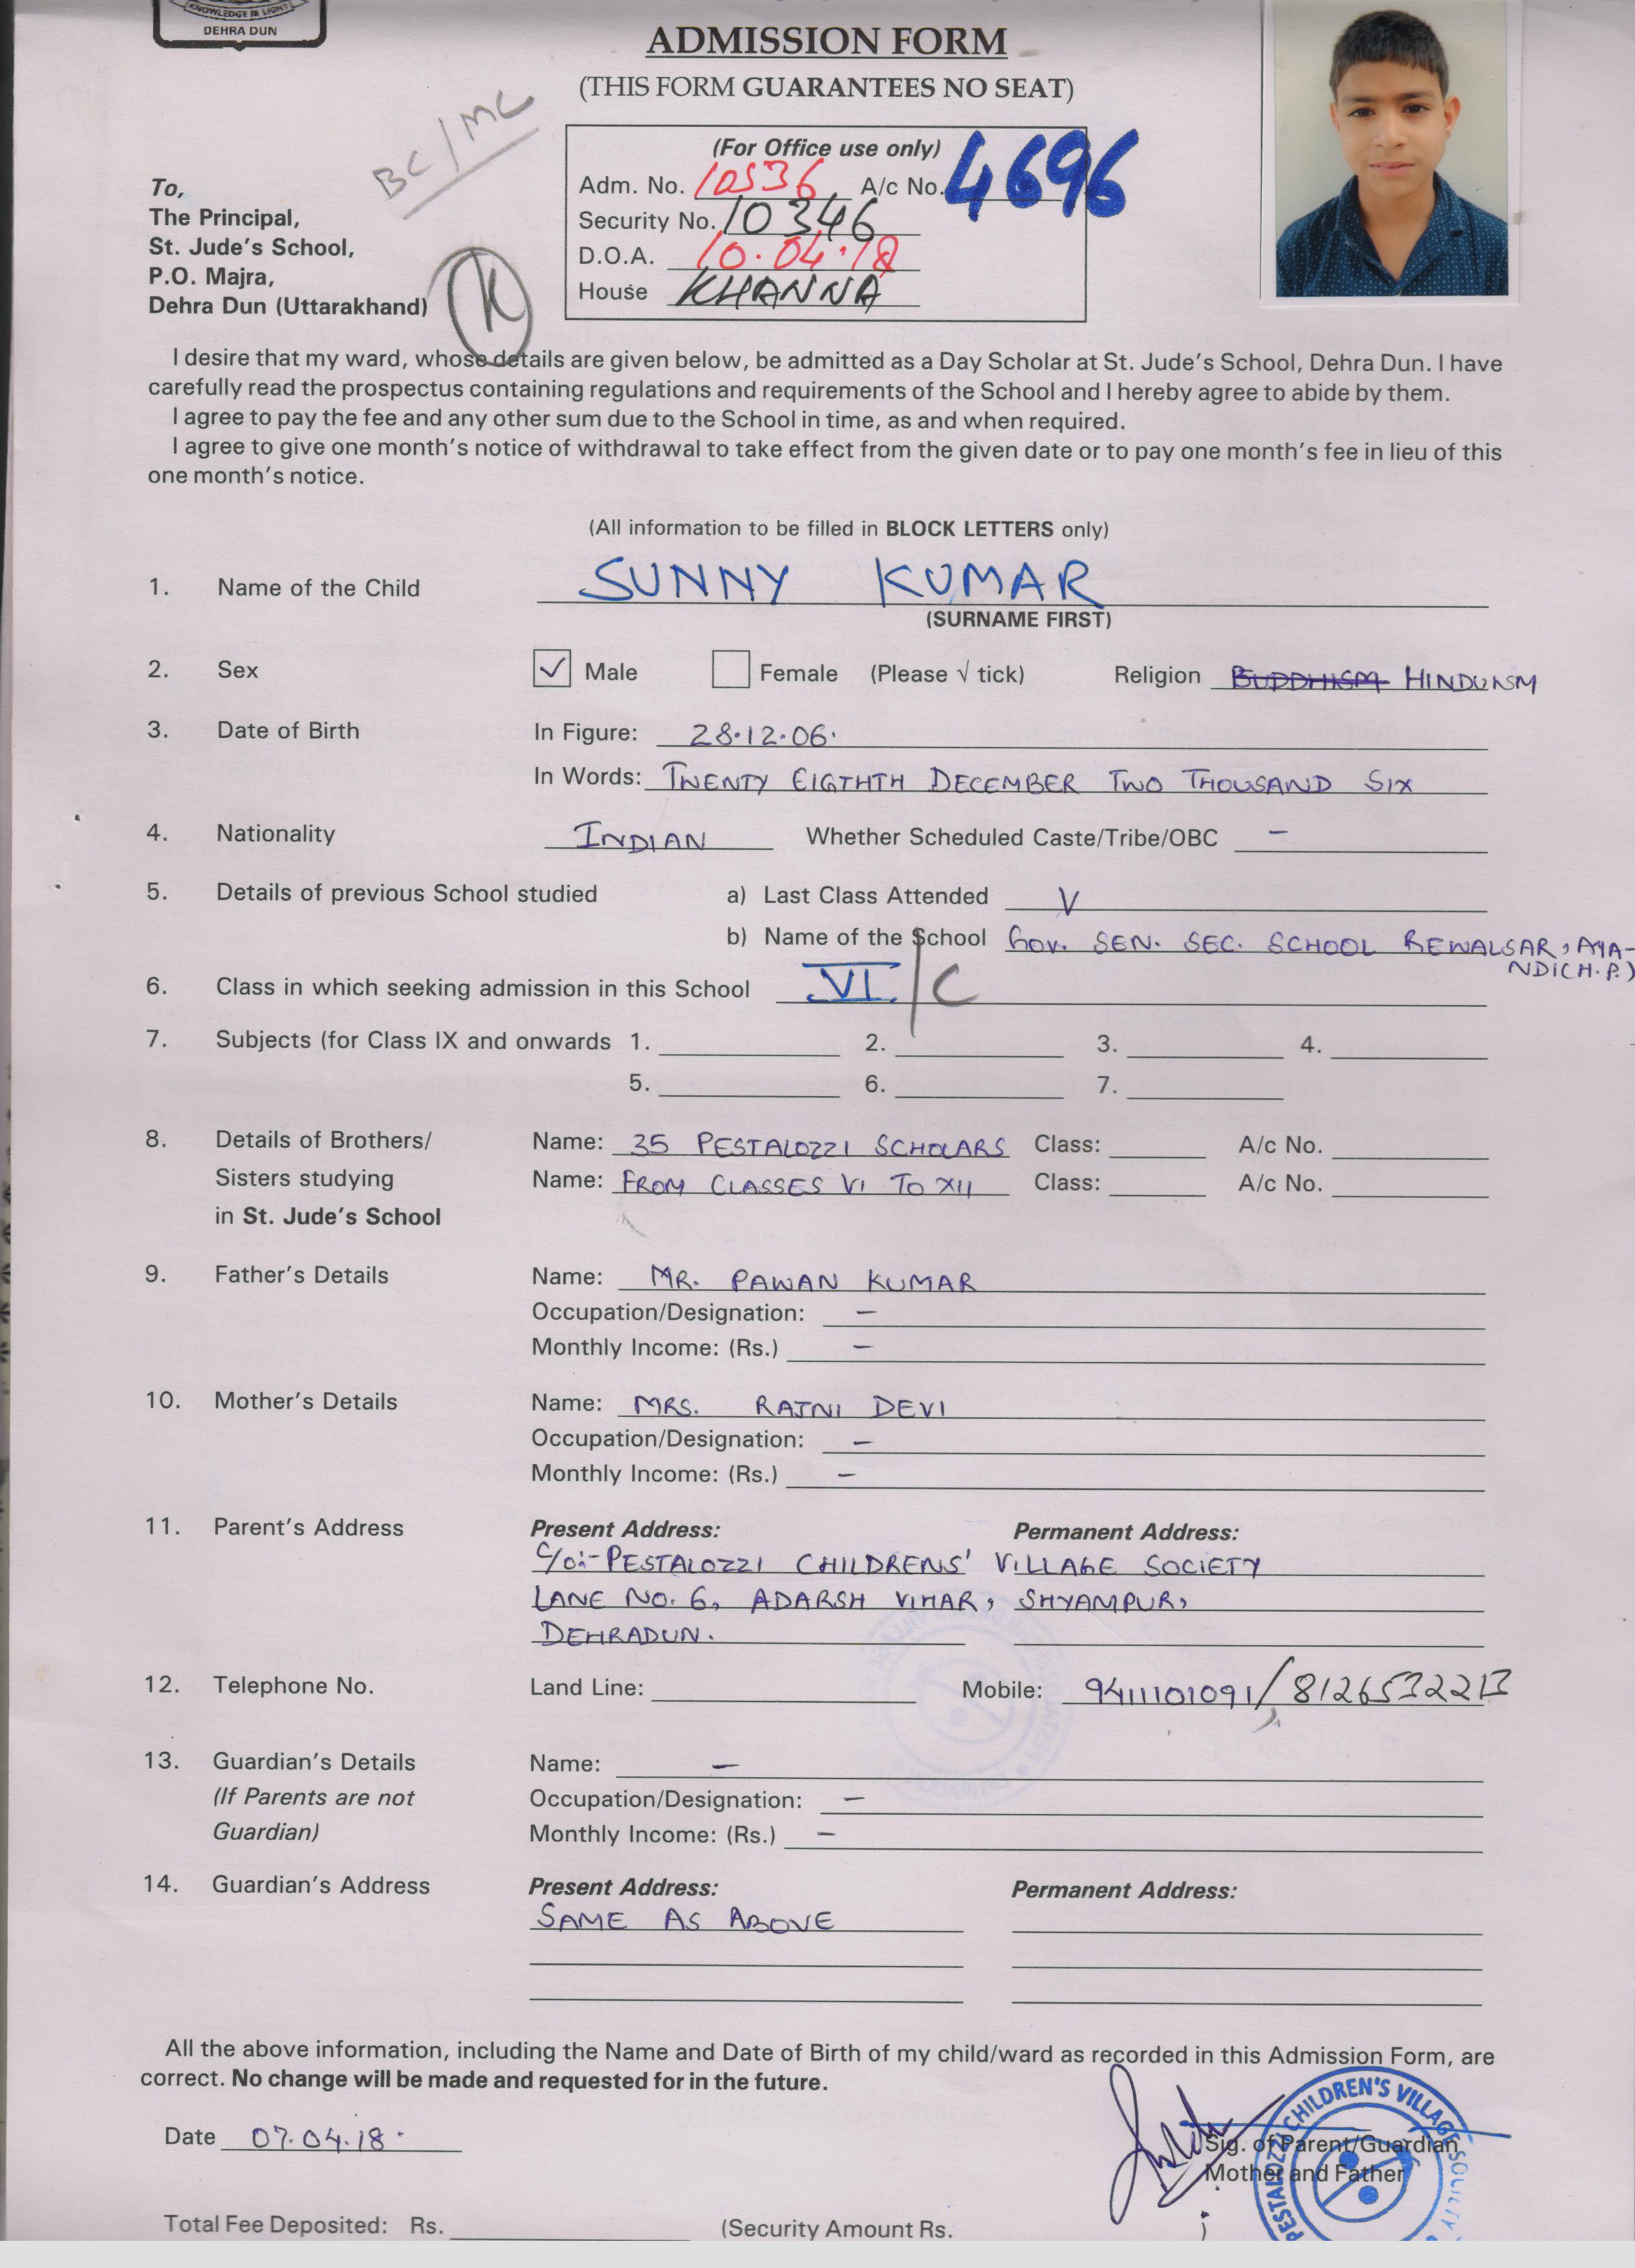 KNOWLEDGE IS LIGHT
DEHRA DUN
ADMISSION FORM
(THIS FORM GUARANTEES NO SEAT)
BC/MC
(For Office use only)
Adm. No. 10536 A/c No. 4696
Security No. 10346
D.O.A. 10.04.18
House KHANNA
To,
The Principal,
St. Jude's School,
P.O. Majra,
Dehra Dun (Uttarakhand)
K
I desire that my ward, whose details are given below, be admitted as a Day Scholar at St. Jude's School, Dehra Dun. I have
carefully read the prospectus containing regulations and requirements of the School and I hereby agree to abide by them.
I agree to pay the fee and any other sum due to the School in time, as and when required.
I agree to give one month's notice of withdrawal to take effect from the given date or to pay one month's fee in lieu of this
one month's notice.
(All information to be filled in BLOCK LETTERS only)
1. Name of the Child SUNNY KUMAR
(SURNAME FIRST)
2. Sex ✓ Male Female (Please √ tick) Religion BUDDHISM HINDUISM
3. Date of Birth In Figure: 28.12.06.
In Words: TWENTY EIGTHTH DECEMBER TWO THOUSAND SIX
4. Nationality INDIAN Whether Scheduled Caste/Tribe/OBC –
5. Details of previous School studied a) Last Class Attended V
b) Name of the School Gov. SEN. SEC. SCHOOL REWALSAR, MA-
NDI(H.P.)
6. Class in which seeking admission in this School VI/C
7. Subjects (for Class IX and onwards 1. 2. 3. 4.
5. 6. 7.
8. Details of Brothers/ Name: 35 PESTALOZZI SCHOLARS Class: A/c No.
Sisters studying Name: FROM CLASSES VI TO XII Class: A/c No.
in St. Jude's School
9. Father's Details Name: MR. PAWAN KUMAR
Occupation/Designation: –
Monthly Income: (Rs.) –
10. Mother's Details Name: MRS. RAJNI DEVI
Occupation/Designation: –
Monthly Income: (Rs.) –
11. Parent's Address Present Address: Permanent Address:
C/o:- PESTALOZZI CHILDRENS' VILLAGE SOCIETY
LANE NO. 6, ADARSH VIHAR, SHYAMPUR,
DEHRADUN.
12. Telephone No. Land Line: Mobile: 9411101091/8126532213
13. Guardian's Details Name: –
(If Parents are not Occupation/Designation: –
Guardian) Monthly Income: (Rs.) –
14. Guardian's Address Present Address: Permanent Address:
SAME AS ABOVE
All the above information, including the Name and Date of Birth of my child/ward as recorded in this Admission Form, are
correct. No change will be made and requested for in the future.
Date 07.04.18.
Sig. of Parent/Guardian
Mother and Father
PESTALOZZI CHILDREN'S VILLAGE SOCIETY
Total Fee Deposited: Rs. (Security Amount Rs.